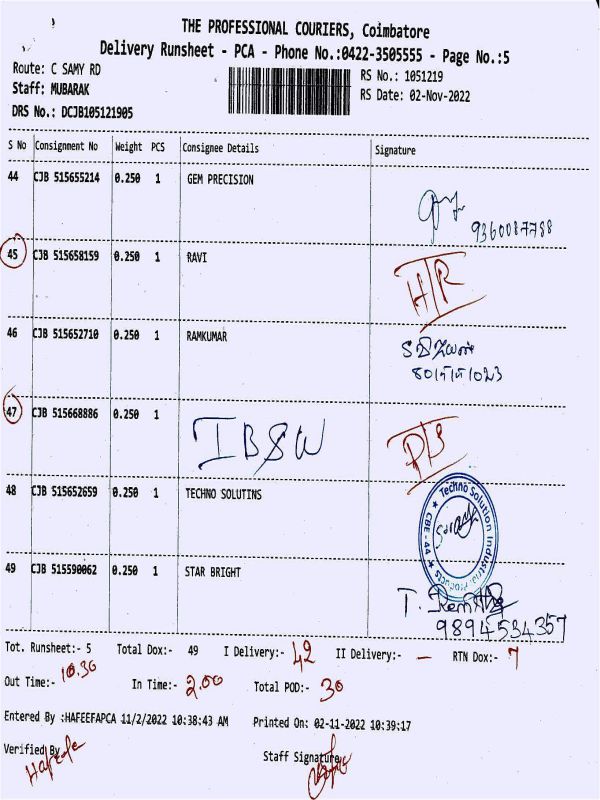 THE PROFESSIONAL COURIERS, Coimbatore
Delivery Runsheet - PCA - Phone No.:0422-3505555 - Page No.:5
Route: C SAMY RD RS No.: 1051219
Staff: MUBARAK RS Date: 02-Nov-2022
DRS No.: DCJB105121905
S No Consignment No Weight PCS Consignee Details Signature
44 CJB 515655214 0.250 1 GEM PRECISION
9360087788
45 CJB 515658159 0.250 1 RAVI HTR
46 CJB 515652710 0.250 1 RAMKUMAR
47 CJB 515668886 0.250 1 IBSW
48 CJB 515652659 0.250 1 TECHNO SOLUTINS
Techno Solution Industrial Products
CBE - 44
49 CJB 515590062 0.250 1 STAR BRIGHT
9894534357
Tot. Runsheet:- 5 Total Dox:- 49 I Delivery:- 42 II Delivery:- — RTN Dox:- 7
Out Time:- 10.30 In Time:- 2.00 Total POD:- 30
Entered By :HAFEEFAPCA 11/2/2022 10:38:43 AM Printed On: 02-11-2022 10:39:17
Verified By Staff Signature